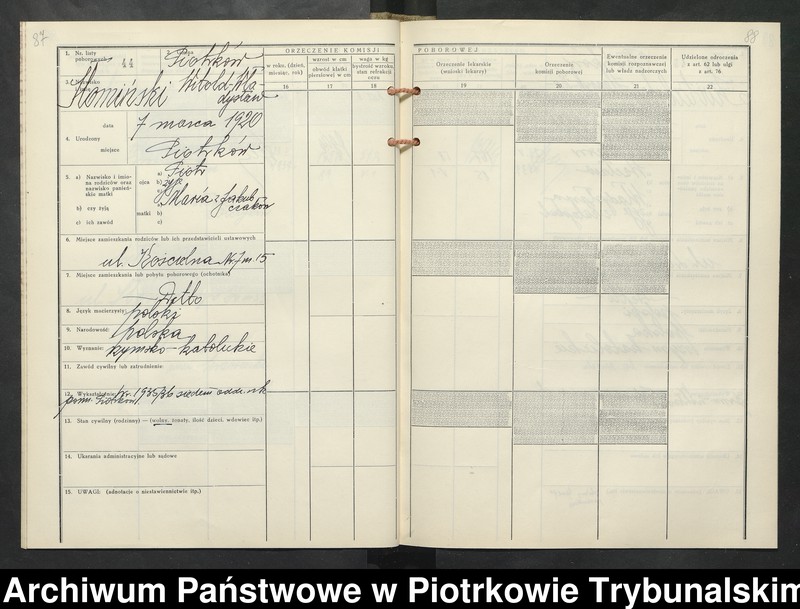 87
88
1. Nr. listy poborowych
44
Piotrków
Witold-Wła
dysław
data
7 marca 1920
4. Urodzony
miejsce
Piotrków
5. a) Nazwisko i imio-
na rodziców oraz
nazwisko panień-
skie matki
b) czy żyją
c) ich zawód
ojca
a) Piotr
b)
c)
matki
a) Maria z Jakub
czaków
b)
c)
6. Miejsce zamieszkania rodziców lub ich przedstawicieli ustawowych
ul. Kościelna Nr 7 m. 15
7. Miejsce zamieszkania lub pobytu poborowego (ochotnika)
8. Język macierzysty:
polski
9. Narodowość:
polska
10. Wyznanie:
rzymsko-katolickie
11. Zawód cywilny lub zatrudnienie
12. Wykształcenie
1935/36 siedem oddz. szk
13. Stan cywilny (rodzinny) — (wolny, żonaty, ilość dzieci, wdowiec itp.)
14. Ukarania administracyjne lub sądowe
15. UWAGI. (adnotacje o niestawiennictwie itp.)
ORZECZENIE KOMISJI POBOROWEJ
w roku, (dzień, miesiąc, rok)
wzrost w cm
obwód klatki piersiowej w cm
waga w kg
bystrość wzroku, stan refrakcji oczu
Orzeczenie lekarskie (wnioski lekarzy)
Orzeczenie komisji poborowej
Ewentualne orzeczenie komisji rozpoznawczej lub władz nadzorczych
Udzielone odroczenia z art. 62 lub ulgi z art. 76
16 17 18 19 20 21 22
Archiwum Państwowe w Piotrkowie Trybunalskim